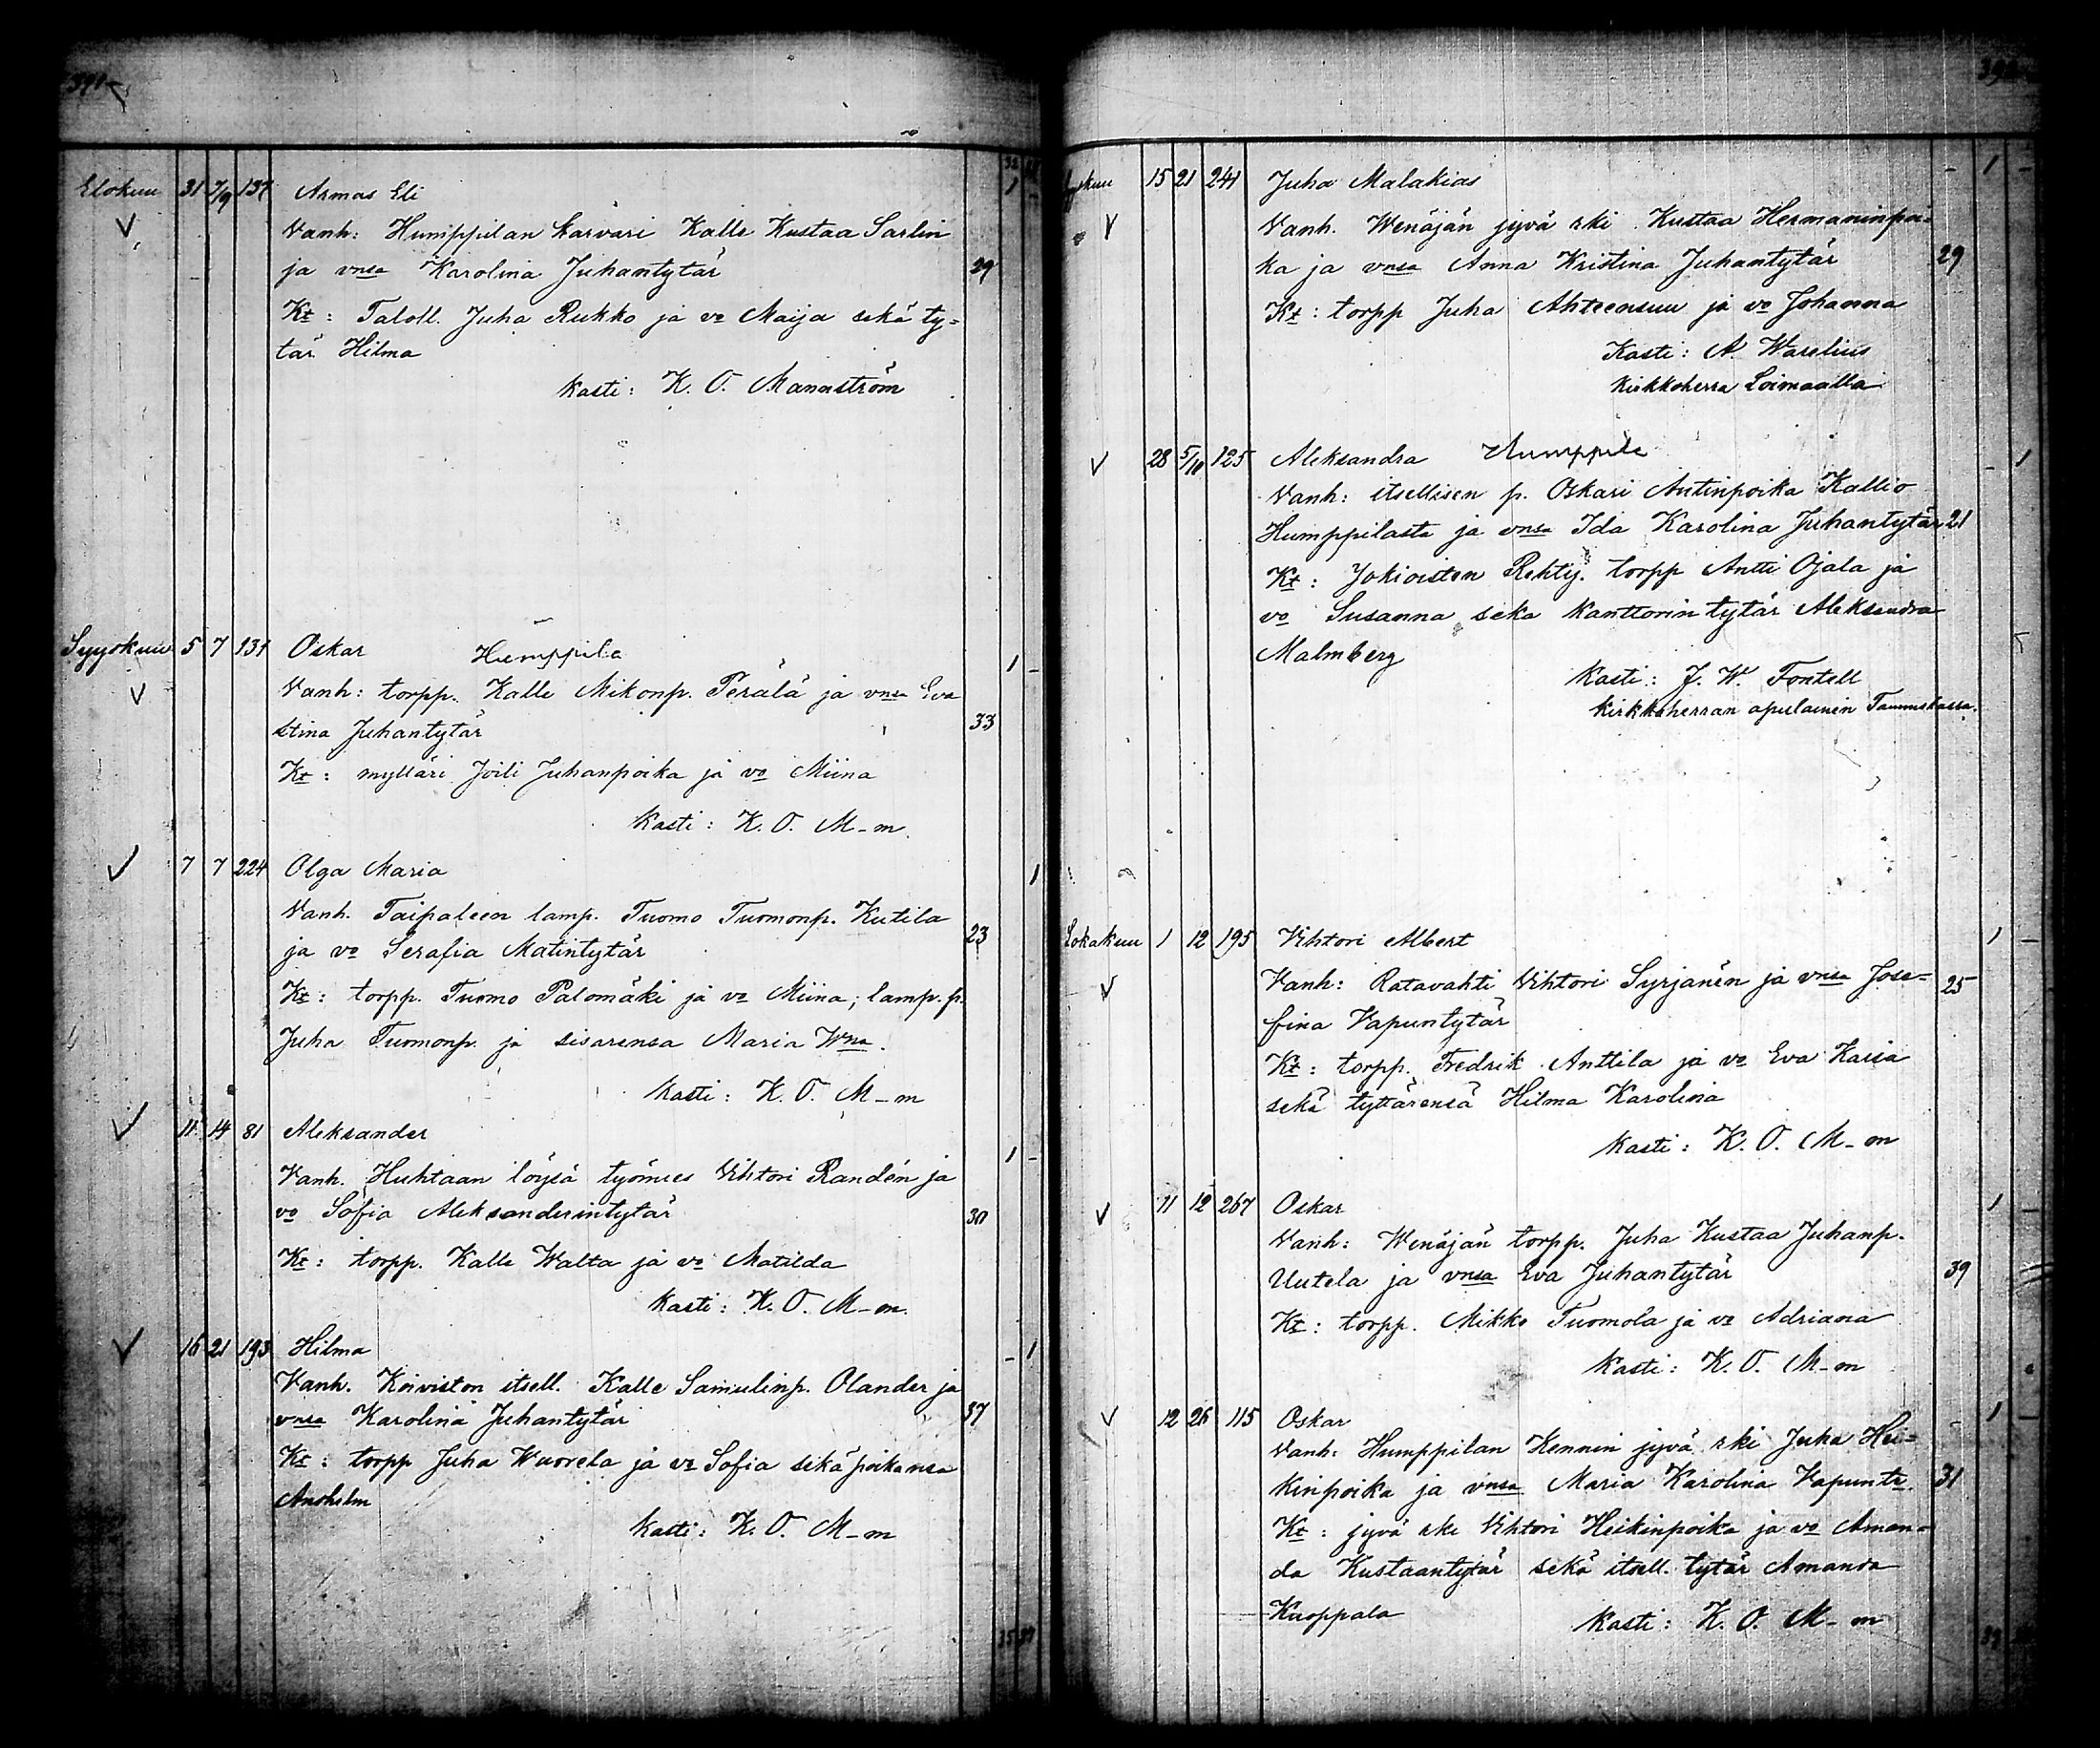 391
32
Elokuu 31 7/9 137 Armas Eli 1 -
Vanh: Humppilan karvari Kalle Kustaa Sarlin
ja vnsa Karolina Juhantytär 29
Kt: Taloll. Juha Rukko ja vo Maija sekä ty=
tär Hilma
Kasti: K. O. Manström
Syyskuu 5 7 131 Oskar Humppila 1 -
Vanh: torpp. Kalle Mikonp. Perälä ja vnsa Eva
Stina Juhantytär 33
Kt: mylläri Joili Juhanpoika ja vo Miina
Kasti: K. O. M-m.
7 7 224 Olga Maria 1
Vanh. Taipaleen lamp. Tuomo Tuomonp. Kutila
ja vo Serafia Matintytär 23
Kt: torpp. Tuomo Palomäki ja vo Miina; lamp. p.
Juha Tuomonp. ja sisarensa Maria Wna.
Kasti: K. O. M-m
11 14 81 Aleksander 1 -
Vanh. Huhtaan löysä työmies Vihtori Randén ja
vo Sofia Aleksanderintytär 30
Kt: torpp. Kalle Walta ja vo Matilda
Kasti: K. O. M-m.
16 21 193 Hilma - 1
Vanh. Koiviston itsell. Kalle Samulinp. Olander ja
vnsa Karolina Juhantytär 37
Kt: torpp Juha Wuorela ja vo Sofia sekä poikansa
Anshelm
Kasti: K. O. M-m
Syyskuu 15 21 241 Juha Malakias - 1 -
Vanh. Wenäjän jyvä rki Kustaa Hermaninpoi=
ka ja vnsa Anna Kristina Juhantytär 29
Kt: torpp Juha Ahteensuu ja vo Johanna
Kasti: A. Warelius
Kirkkoherra Loimaalla
28 5/10 125 Aleksandra Humppila - 1
Vanh: itsellisen p. Oskari Antinpoika Kallio
Humppilasta ja vnsa Ida Karolina Juhantytär 21
Kt: Jokioisten Rehtij. torpp Antti Ojala ja
vo Susanna seka kanttorin tytär Aleksandra
Malmberg
Kasti: J. W. Fontell
Kirkkoherran apulainen Tammelassa.
Lokakuu 1 12 195 Vihtori Albert 1 -
Vanh: Ratavahti Vihtori Syrjänen ja vnsa Jose=
fina Vapuntytär 25
Kt: torpp. Fredrik Anttila ja vo Eva Kaisa
sekä tyttärensä Hilma Karolina
Kasti: K. O. M-m
11 12 267 Oskar 1 -
Vanh: Wenäjän torpp. Juha Kustaa Juhanp.
Uutela ja vnsa Eva Juhantytär 39
Kt: torpp. Mikko Tuomola ja vo Adriana
Kasti: K. O. M-m
12 26 115 Oskar - 1 -
Vanh: Humppilan Kennin jyvä rki Juha Hei=
kinpoika ja vnsa Maria Karolina Vapuntr. 31
Kt: jyvä rki Vihtori Heikinpoika ja vo Aman=
da Kustaantytär sekä itsell. tytär Amanda
Kuoppala
Kasti: K. O. M-m